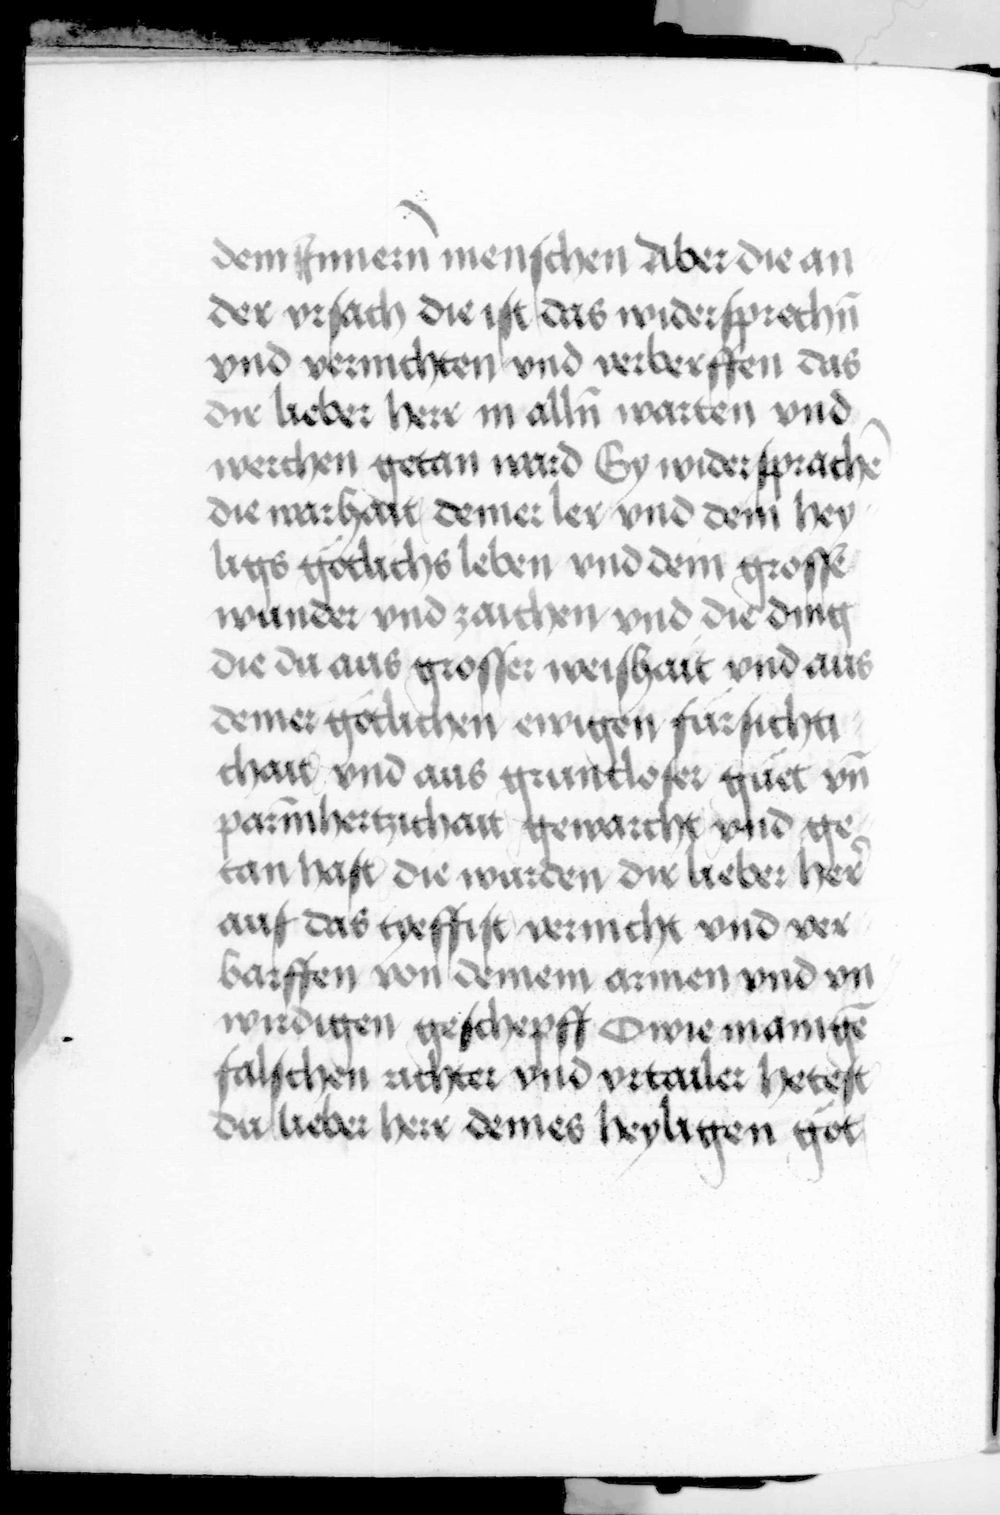 dem Innern̄ menschen Aber die an
der vrsach die ist das widersprechn̄
vnd vernichten vnd verberffen das
dir lieber herr in alln̄ warten vnd
werchen getan ward Sy widersprachē
die warhait deiner ler vnd dein hey
ligs götlichs leben vnd dein grossē
wunder vnd zaichen vnd die ding
die du aus grosser weishait vnd aus
deiner götlichen ewigen fürsichti
chait vnd aus gruntloser güet vn̄
parm̄hertzichait gewarcht vnd ge
tan hast die wurden dir lieber her̄
auf das tyeffist vernicht vnd ver
barffen von deinem armen vnd vn
wirdigen geschepff O wie manigē
falschen richter vnd vrtailer hetest
du lieber herr deines heyligen göt